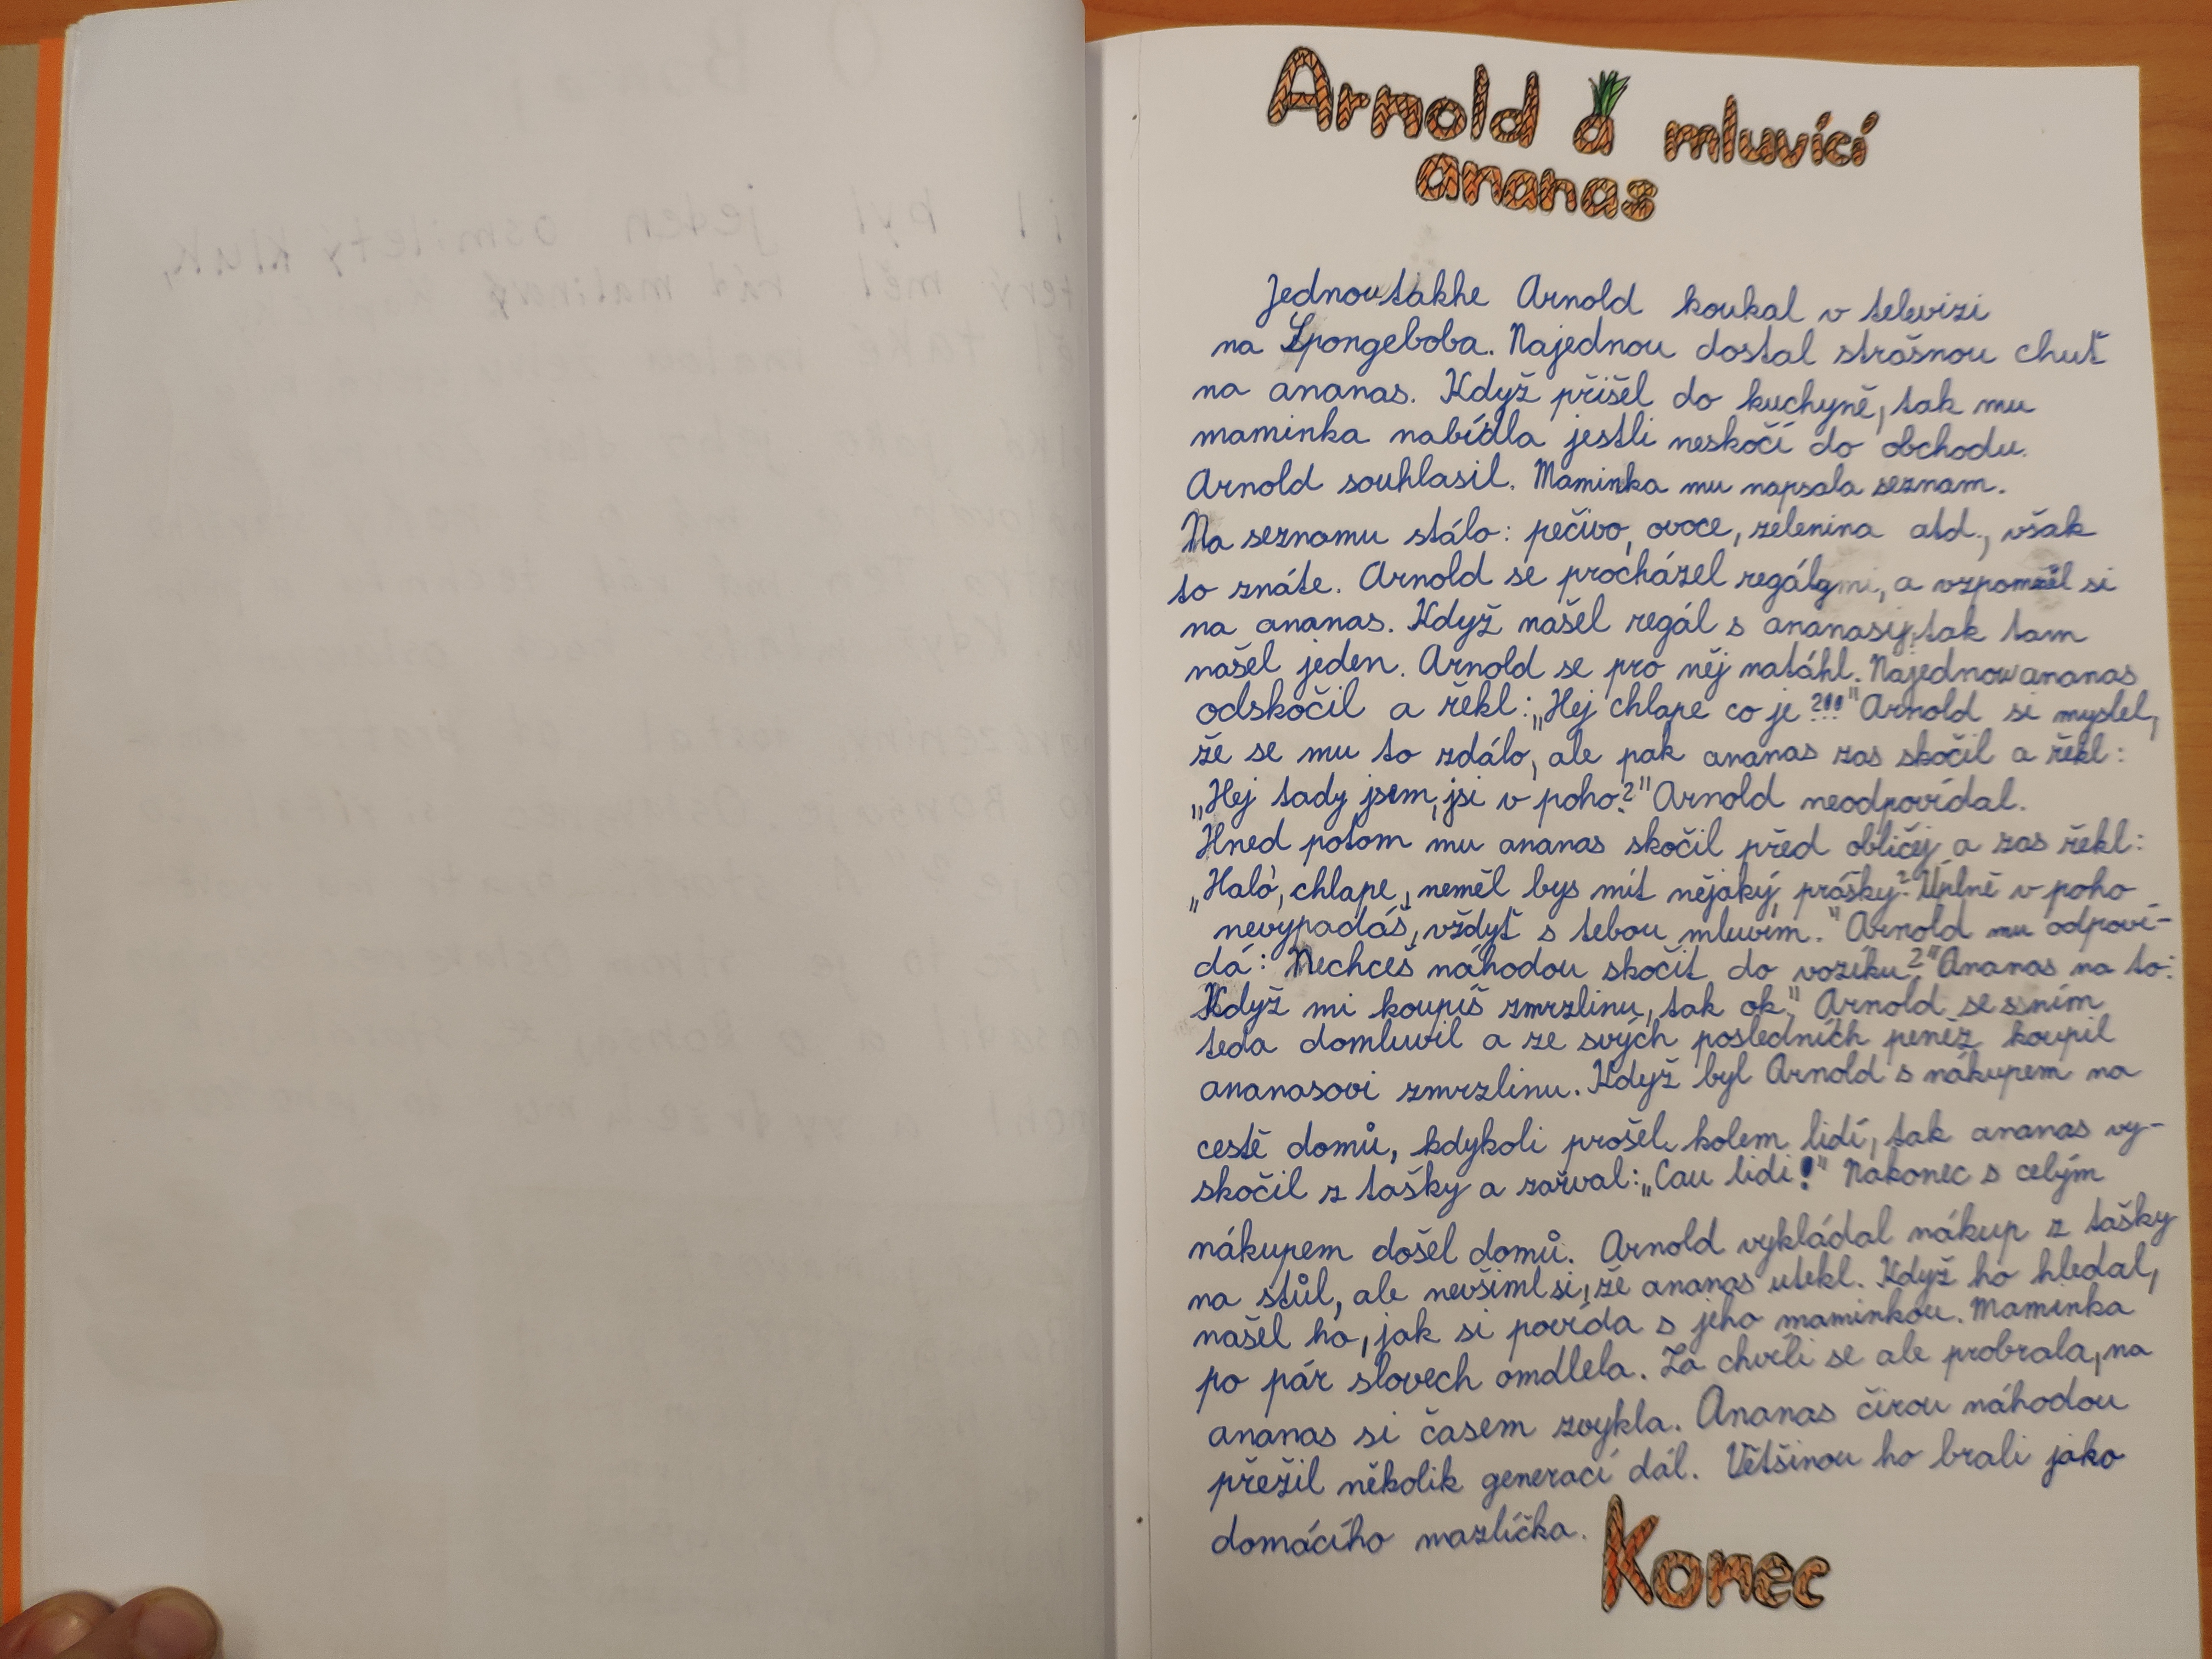 Arnold a mluvící
ananas
Jednou takhe Arnold koukal v televizi
na Spongeboba. Najednou dostal strašnou chuť
na ananas. Když přišel do kuchyně, tak mu
maminka nabídla jestli neskočí do obchodu.
Arnold souhlasil. Maminka mu napsala seznam.
Na seznamu stálo: pečivo, ovoce, zelenina atd., však
to znáte. Arnold se procházel regálymi, a vzpomněl si
na ananas. Když našel regál s ananasy, tak tam
našel jeden. Arnold se pro něj natáhl. Najednou ananas
odskočil a řekl: „Hej chlape co je ?!!" Arnold si myslel,
že se mu to zdálo, ale pak ananas zas skočil a řekl:
„Hej tady jsem, jsi v poho?" Arnold neodpovídal.
Hned potom mu ananas skočil před obličej a zas řekl:
„Haló, chlape, neměl bys mít nějaký prášky? Úplně v poho
nevypadáš, vždyť s tebou mluvím." Arnold mu odpoví-
dá: Nechceš náhodou skočit do vozíku?" Ananas na to:
Když mi koupíš zmrzlinu, tak ok." Arnold se s ním
teda domluvil a ze svých posledních peněz koupil
ananasovi zmrzlinu. Když byl Arnold s nákupem na
cestě domů, kdykoli prošel kolem lidí, tak ananas vy-
skočil z tašky a zařval: „Čau lidi!" Nakonec s celým
nákupem došel domů. Arnold vykládal nákup z tašky
na stůl, ale nevšiml si, že ananas utekl. Když ho hledal,
našel ho, jak si povídá s jeho maminkou. Maminka
po pár slovech omdlela. Za chvíli se ale probrala, na
ananas si časem zvykla. Ananas čirou náhodou
přežil několik generací dál. Většinou ho brali jako
domácího mazlíčka.
Konec